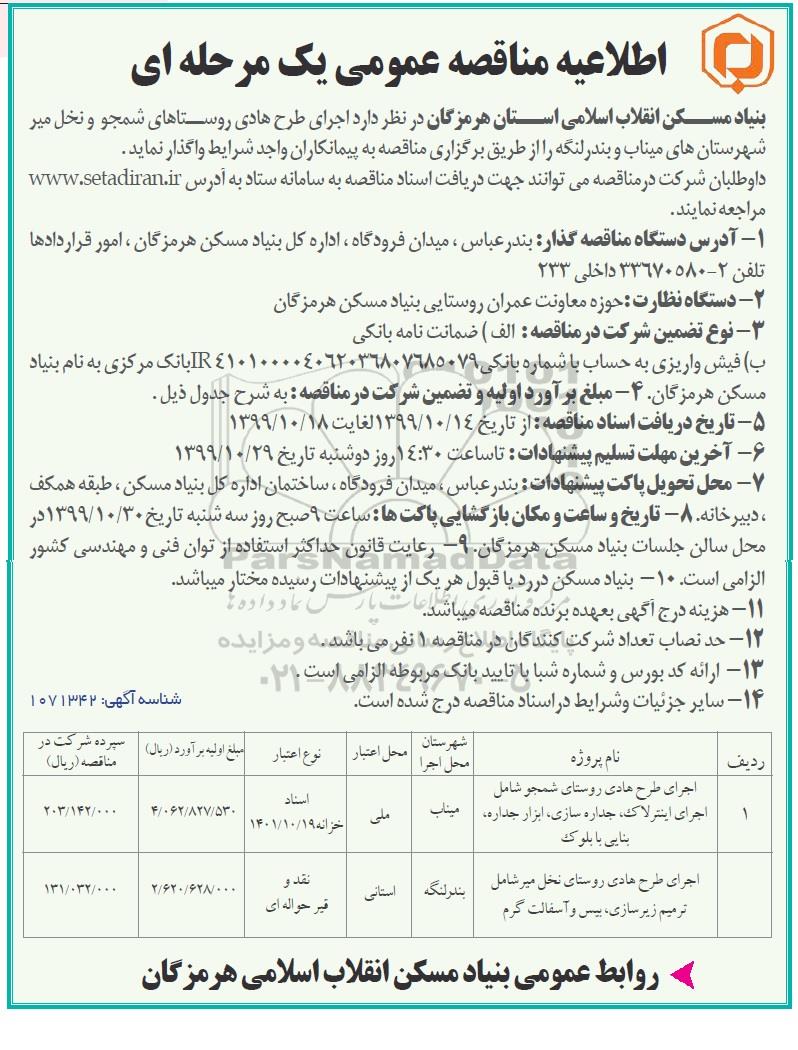 اطلاعیه مناقصه عمومی یک مرحله ای
بنیاد مسکن انقلاب اسلامی استان هرمزگان در نظر دارد اجرای طرح هادی روستاهای شمجو و نخل میر
شهرستان های میناب و بندرلنگه را از طریق برگزاری مناقصه به پیمانکاران واجد شرایط واگذار نماید .
داوطلبان شرکت درمناقصه می توانند جهت دریافت اسناد مناقصه به سامانه ستاد به آدرس www.setadiran.ir
مراجعه نمایند.
۱- آدرس دستگاه مناقصه گذار: بندرعباس ، میدان فرودگاه ، اداره کل بنیاد مسکن هرمزگان ، امور قراردادها
تلفن ۲-۳۳۶۷۰۵۸۰ داخلی ۲۳۳
۲- دستگاه نظارت :حوزه معاونت عمران روستایی بنیاد مسکن هرمزگان
۳- نوع تضمین شرکت درمناقصه : الف ) ضمانت نامه بانکی
ب) فیش واریزی به حساب با شماره بانکی IR ۴۱۰۱۰۰۰۰۴۰۶۲۰۳۶۸۰۷۶۸۵۰۷۹بانک مرکزی به نام بنیاد
مسکن هرمزگان. ۴- مبلغ برآورد اولیه و تضمین شرکت درمناقصه : به شرح جدول ذیل .
۵- تاریخ دریافت اسناد مناقصه : از تاریخ ۱۳۹۹/۱۰/۱۴لغایت ۱۳۹۹/۱۰/۱۸
۶- آخرین مهلت تسلیم پیشنهادات : تاساعت ۱۴:۳۰روز دوشنبه تاریخ ۱۳۹۹/۱۰/۲۹
۷- محل تحویل پاکت پیشنهادات : بندرعباس ، میدان فرودگاه ، ساختمان اداره کل بنیاد مسکن ، طبقه همکف
، دبیرخانه. ۸- تاریخ و ساعت و مکان بازگشایی پاکت ها : ساعت ۹صبح روز سه شنبه تاریخ۱۳۹۹/۱۰/۳۰در
محل سالن جلسات بنیاد مسکن هرمزگان. ۹- رعایت قانون حداکثر استفاده از توان فنی و مهندسی کشور
الزامی است. ۱۰- بنیاد مسکن دررد یا قبول هر یک از پیشنهادات رسیده مختار میباشد.
۱۱- هزینه درج آگهی بعهده برنده مناقصه میباشد.
۱۲- حد نصاب تعداد شرکت کنندگان در مناقصه ۱ نفر می باشد .
۱۳- ارائه کد بورس و شماره شبا با تایید بانک مربوطه الزامی است .
۱۴- سایر جزئیات وشرایط دراسناد مناقصه درج شده است.
شناسه آگهی: ۱۰۷۱۳۴۲
ParsNamadData
پایگاه اطلاع رسانی مناقصه و مزایده
۰۲۱-۸۸۳۴۹۶۷۰-۵
ردیف نام پروژه شهرستان محل اجرا محل اعتبار نوع اعتبار مبلغ اولیه برآورد (ریال) سپرده شرکت در مناقصه (ریال)
۱ اجرای طرح هادی روستای شمجو شامل اجرای اینترلاک، جداره سازی، ابزار جداره، بنایی با بلوک میناب ملی اسناد خزانه۱۴۰۱/۱۰/۱۹ ۴/۰۶۲/۸۲۷/۵۳۰ ۲۰۳/۱۴۲/۰۰۰
اجرای طرح هادی روستای نخل میرشامل ترمیم زیرسازی، بیس وآسفالت گرم بندرلنگه استانی نقد و قیر حواله ای ۲/۶۲۰/۶۲۸/۰۰۰ ۱۳۱/۰۳۲/۰۰۰
روابط عمومی بنیاد مسکن انقلاب اسلامی هرمزگان